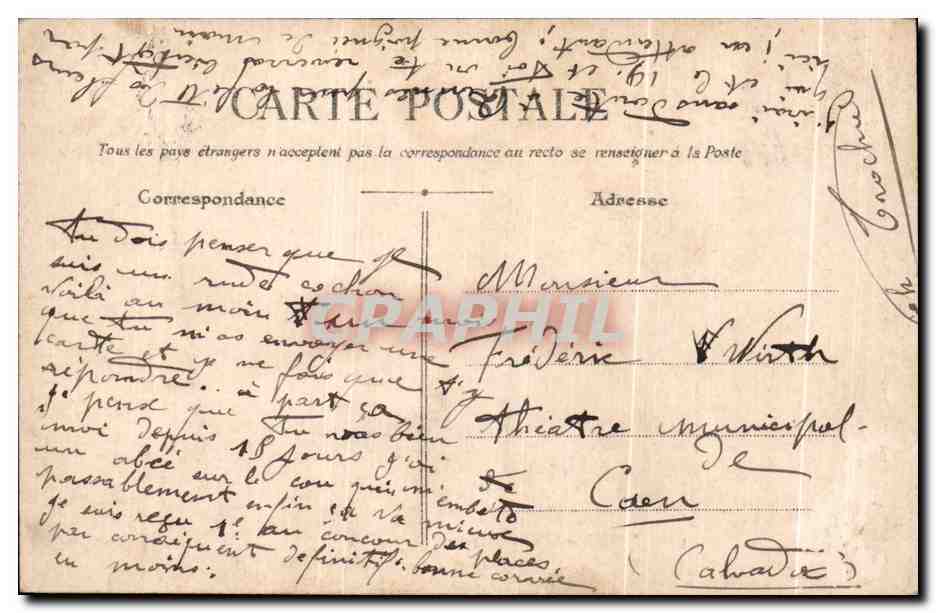 CARTE POSTALE
Tous les pays étrangers n'acceptent pas la correspondance au recto se renseigner à la Poste
Correspondance
Adresse
Tu dois penser que je
suis un rude cochon
voilà au moin un moi
que tu m'as envoyer une
carte et je ne fais que t'y
répondre.. à part ça
j' pense que tu vas bien
moi depuis 15 jours j'ai
un abcé sur le cou qui m'embête
passablement enfin ça va mieux
je suis reçu 1e au concour des places
par conséquent définitif. bonne corvée
en moins.
j'irai sans doute à Rennes pour le
qui est le 19, et toi on te reverras bientôt par
ici; en attendant; bonne poignée de main
Monsieur
Fréderic Wirth
théatre Municipal
de
Caen
(Calvados)
CPARAPHIL